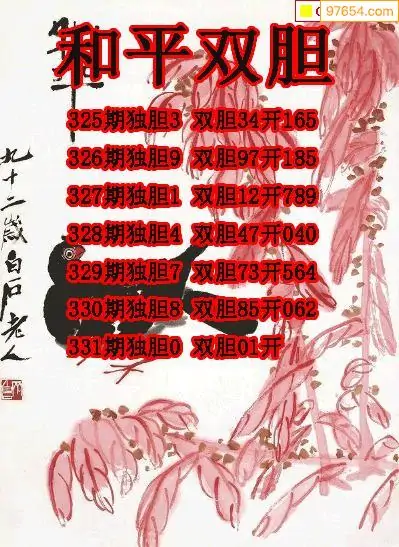 97654.com
和平双胆
325期独胆3 双胆34开165
326期独胆9 双胆97开185
327期独胆1 双胆12开789
328期独胆4 双胆47开040
329期独胆7 双胆73开564
330期独胆8 双胆85开062
331期独胆0 双胆01开
九十二岁白石老人